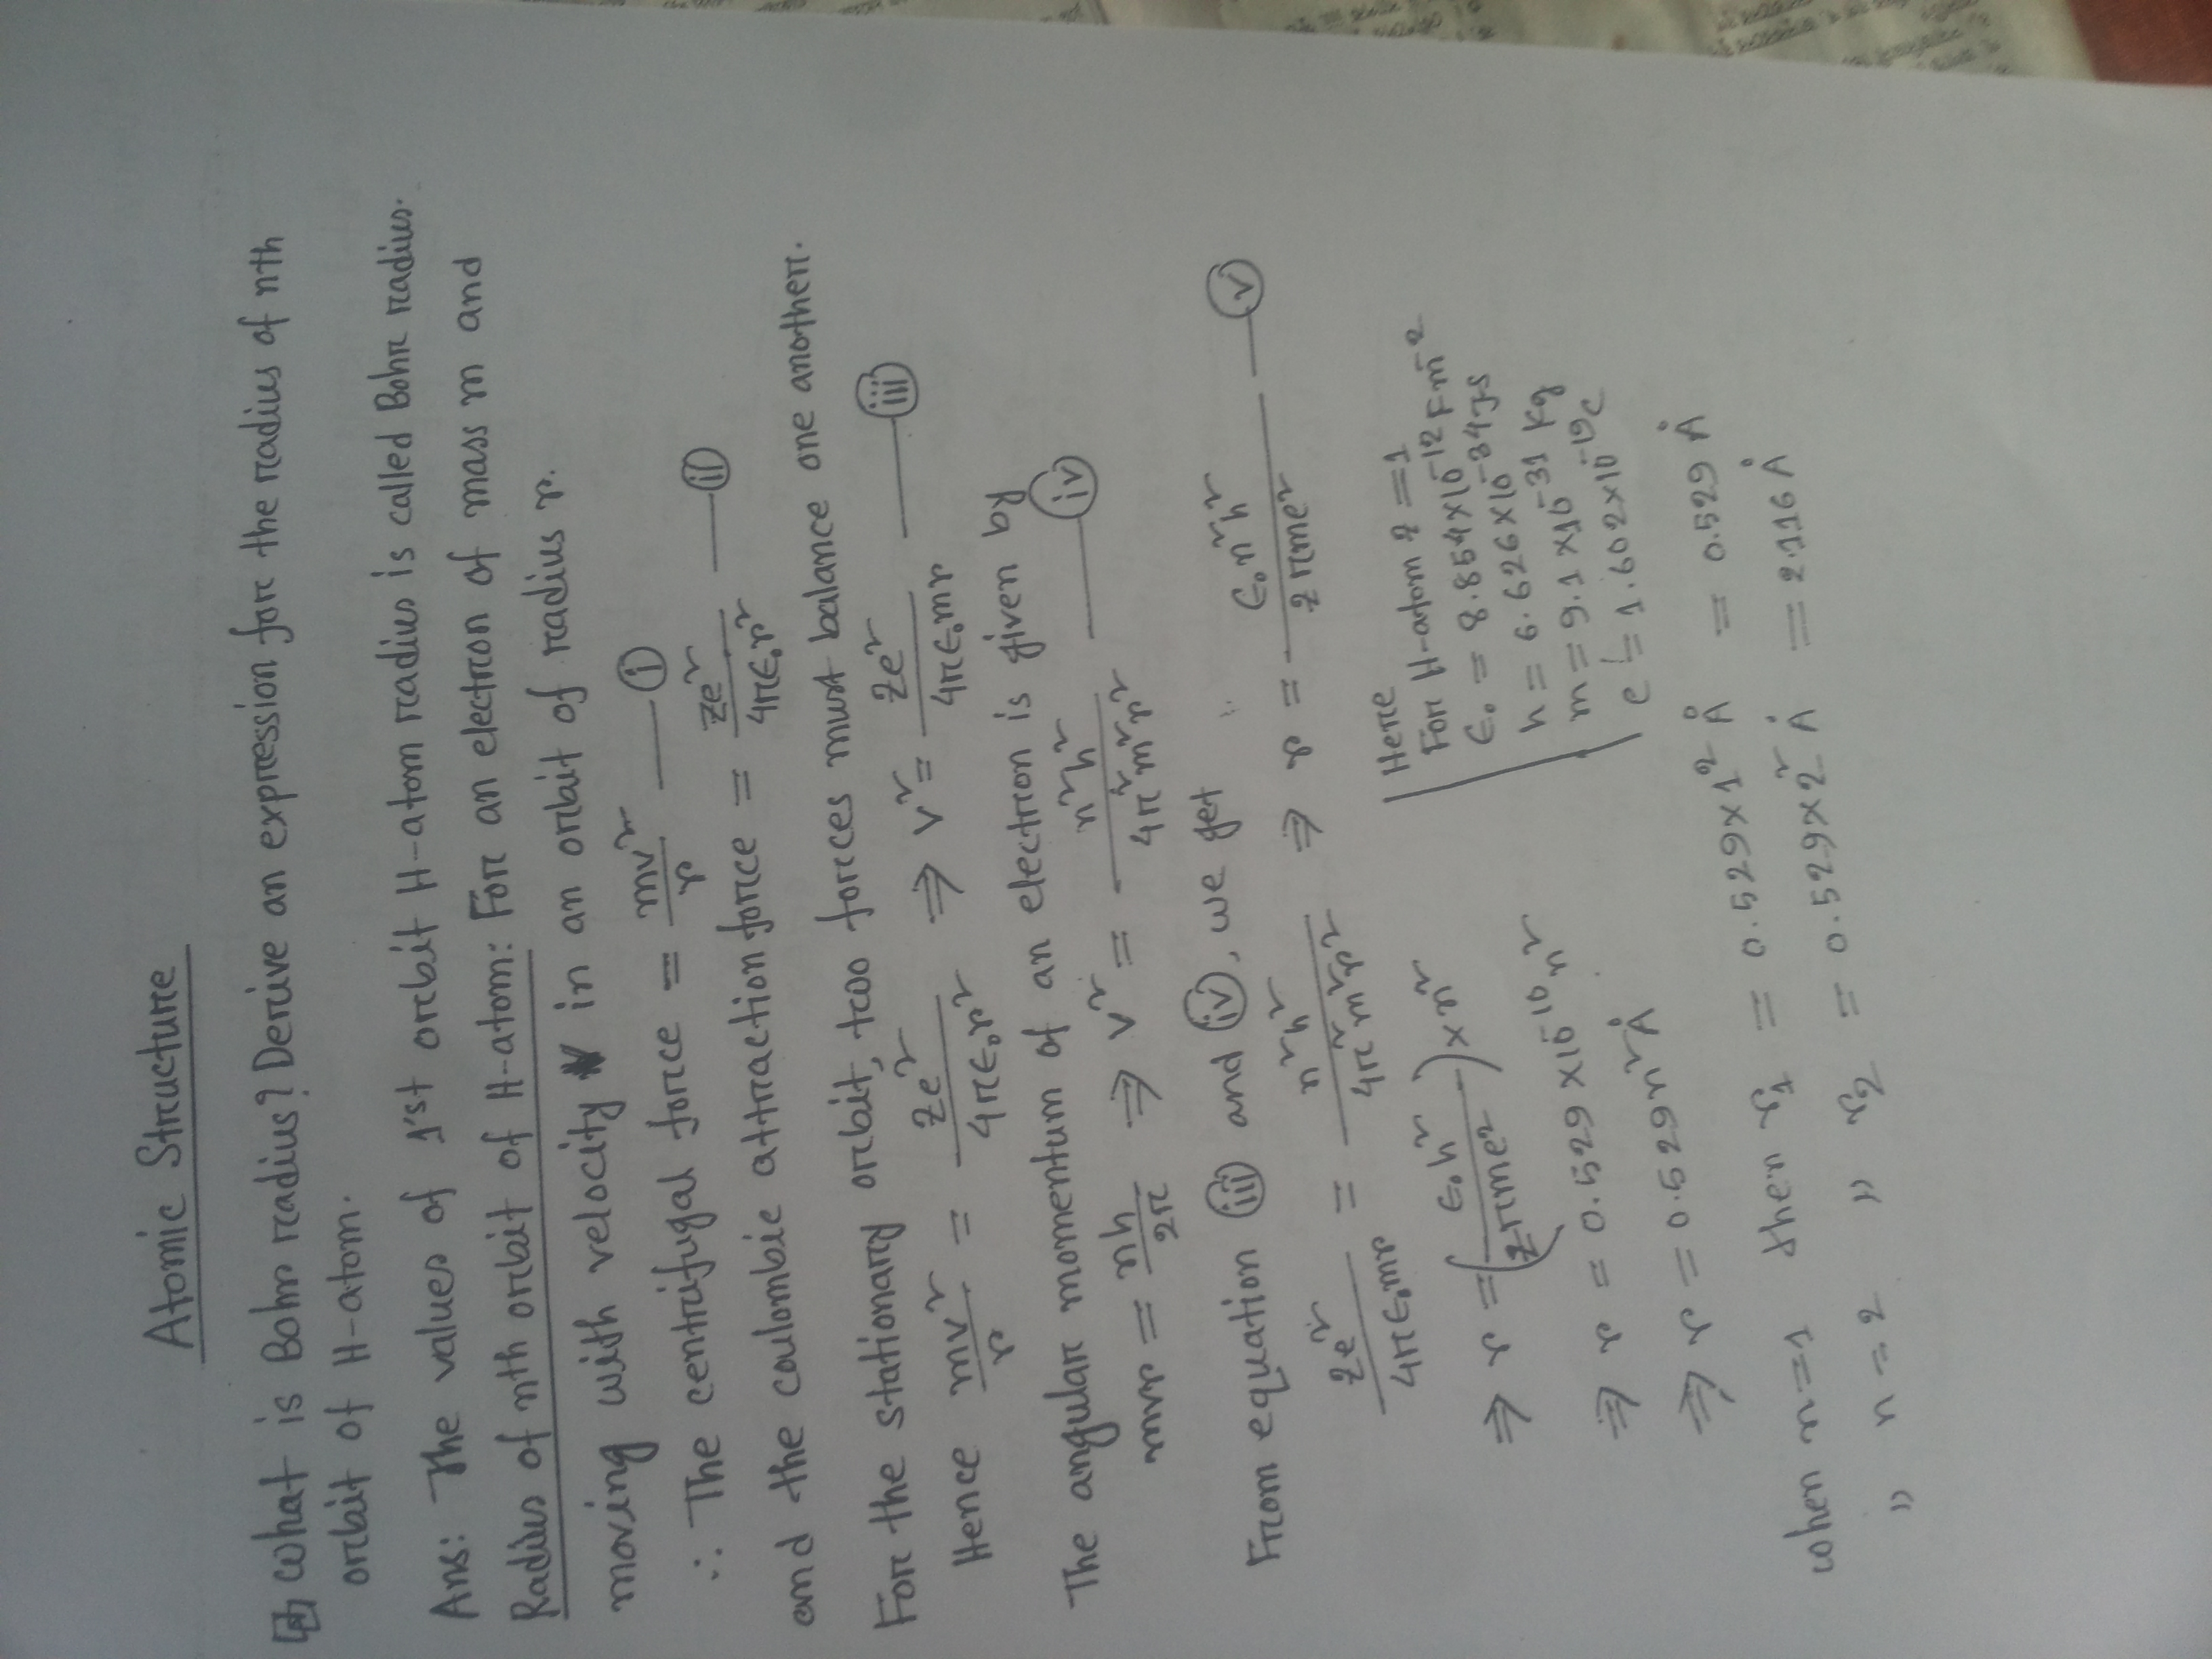 Atomic Structure
What is Bohr radius? Derive an expression for the radius of nth
orbit of H-atom.
Ans: The values of 1'st orbit H-atom radius is called Bohr radius.
Radius of nth orbit of H-atom: For an electron of mass m and
moving with velocity v in an orbit of radius r.
∴ The centrifugal force = mv²/r —— (i)
and the coulombic attraction force = Ze²/4πε₀r² —— (ii)
For the stationary orbit, two forces must balance one another.
Hence mv²/r = Ze²/4πε₀r² ⇒ v² = Ze²/4πε₀mr —— (iii)
The angular momentum of an electron is given by
mvr = nh/2π ⇒ v² = n²h²/4π²m²r² —— (iv)
From equation (iii) and (iv), we get
Ze²/4πε₀mr = n²h²/4π²m²r² ⇒ r = ε₀n²h²/Zπme² —— (v)
⇒ r = (ε₀h²/Zπme²) × n²
⇒ r = 0.529 × 10⁻¹⁰ n²
⇒ r = 0.529n² Å
Here
For H-atom Z = 1
ε₀ = 8.854 × 10⁻¹² Fm⁻²
h = 6.626 × 10⁻³⁴ Js
m = 9.1 × 10⁻³¹ kg
e = 1.602 × 10⁻¹⁹ C
when n = 1 then r₁ = 0.529 × 1² Å = 0.529 Å
" n = 2 " r₂ = 0.529 × 2² Å = 2.116 Å